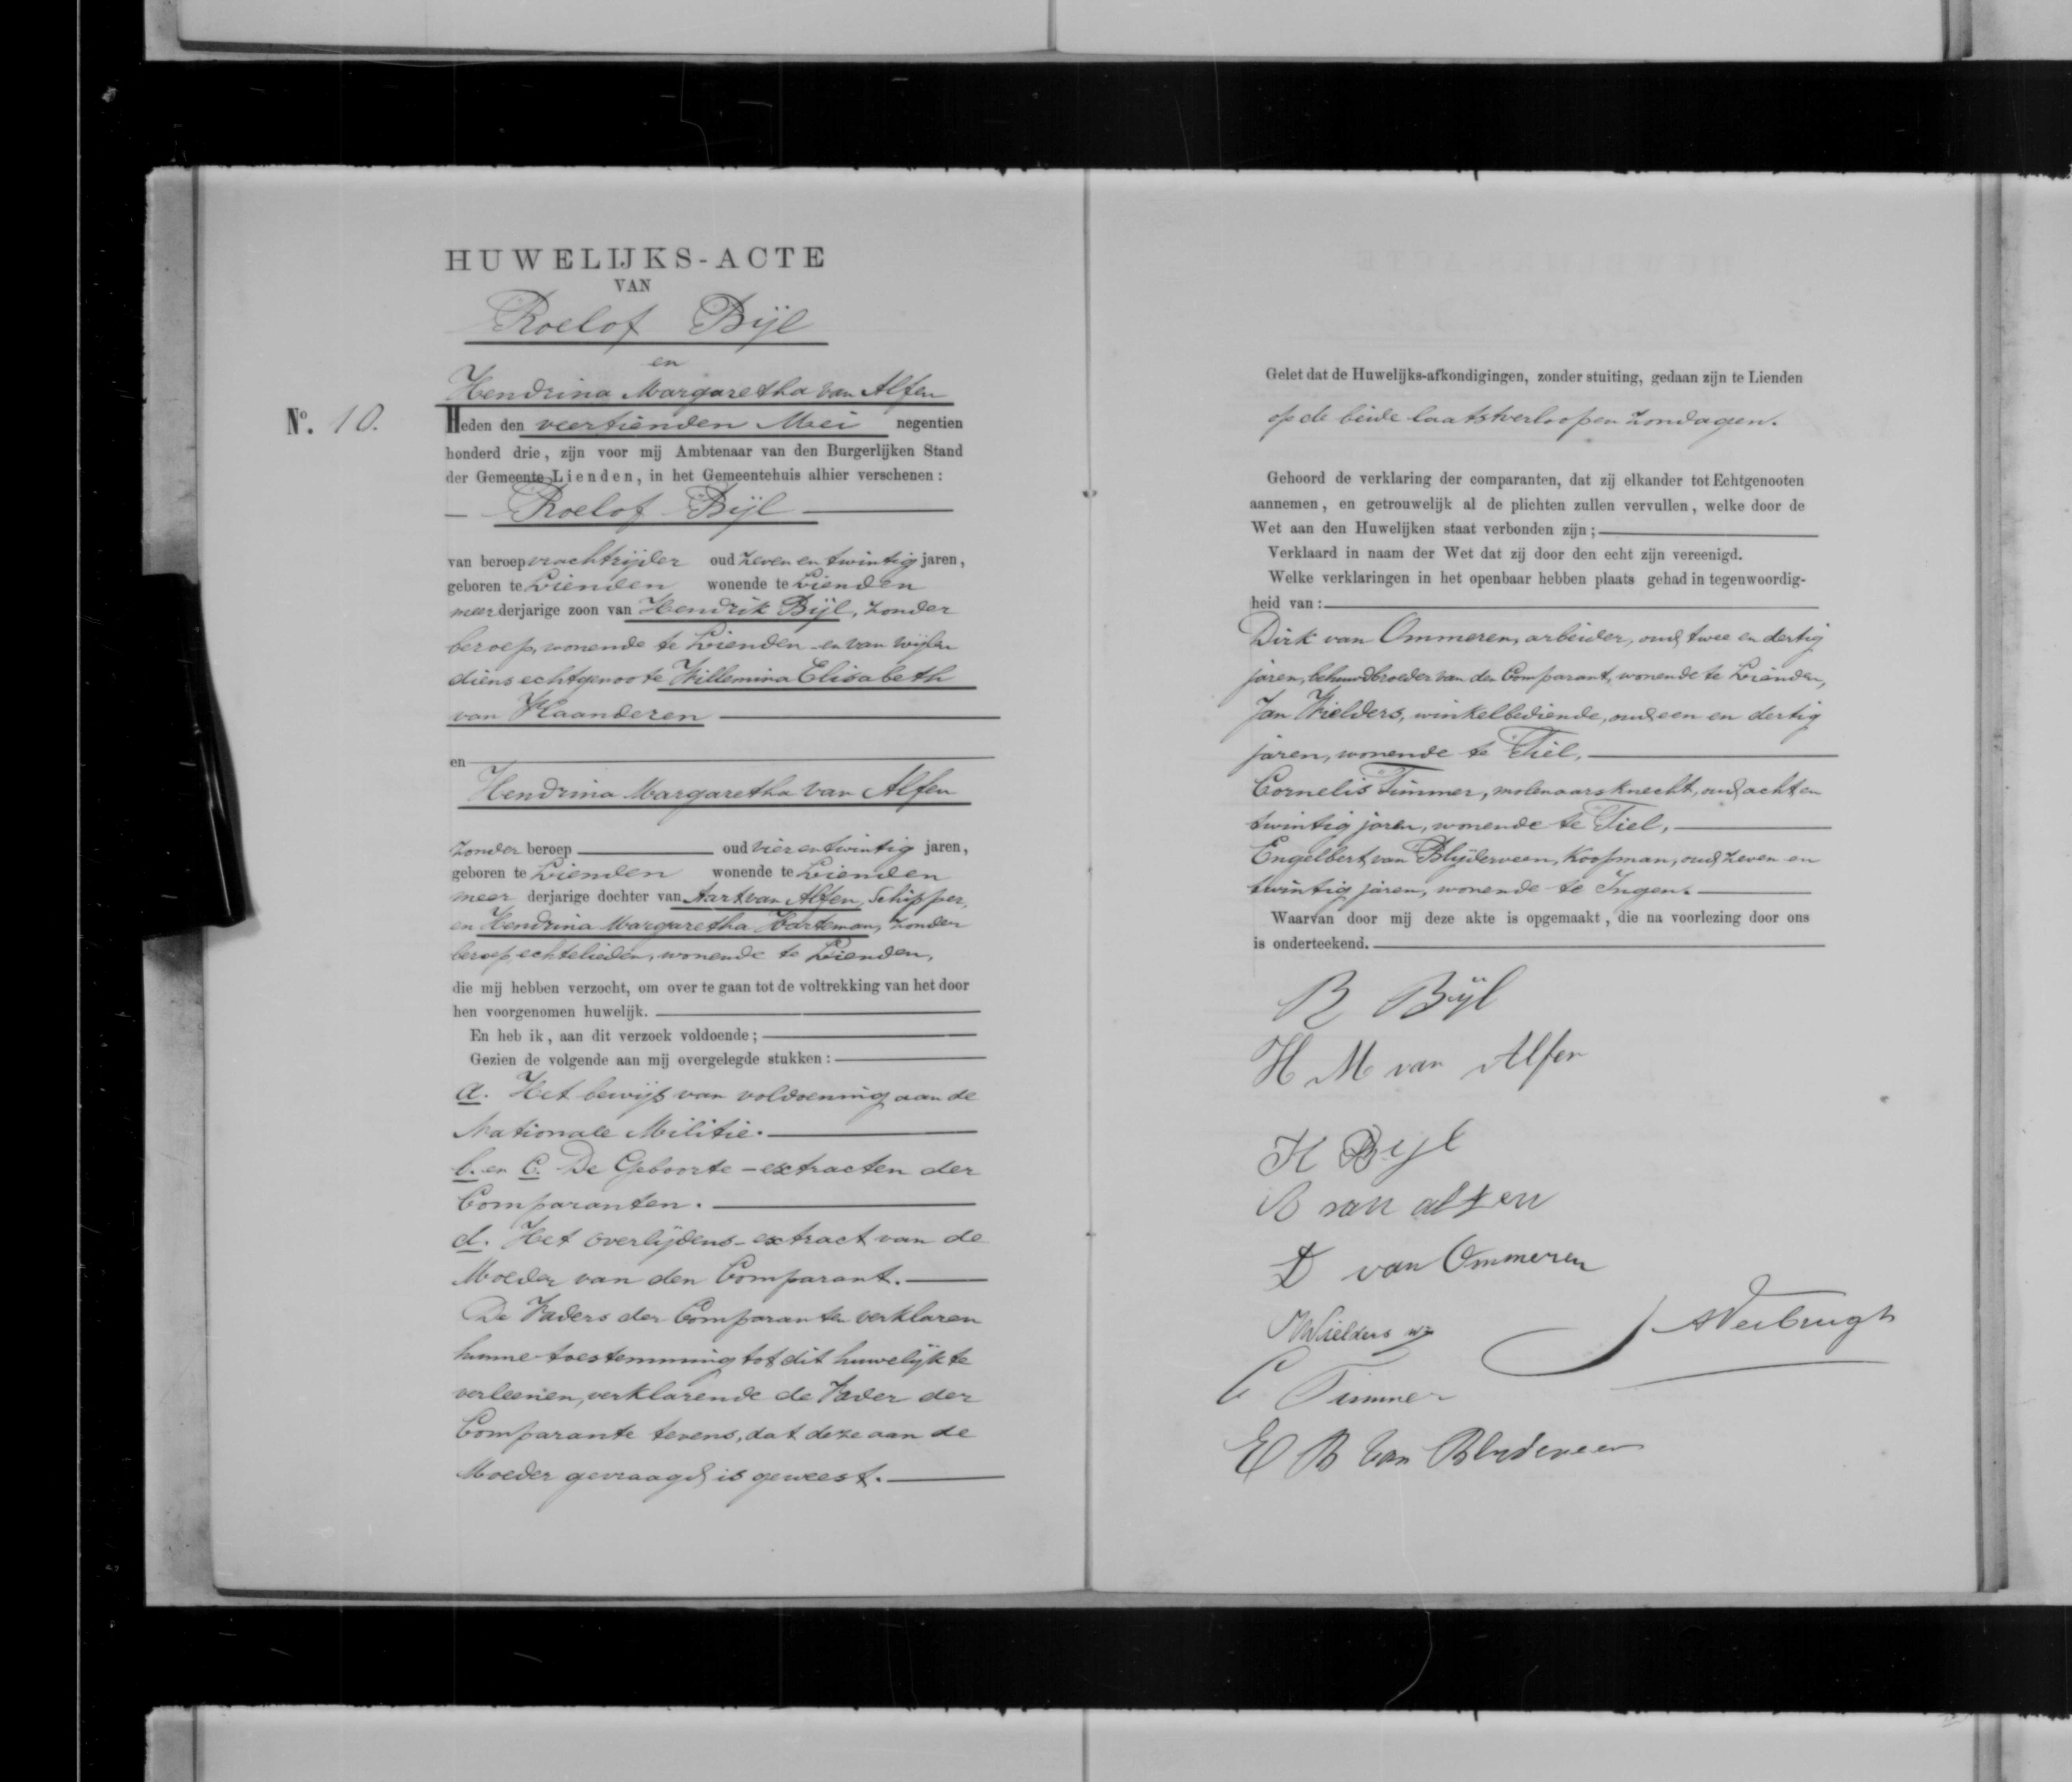 HUWELIJKS-ACTE
VAN
Roelof Bijl
en
Hendrina Margaretha van Alfen
No. 10.
Heden den veertienden Mei negentien
honderd drie, zijn voor mij Ambtenaar van den Burgerlijken Stand
der Gemeente Lienden, in het Gemeentehuis alhier verschenen:
Roelof Bijl
van beroep vrachtrijder oud zeven en twintig jaren,
geboren te Lienden wonende te Lienden
meerderjarige zoon van Hendrik Bijl, zonder
beroep, wonende te Lienden en van wijlen
diens echtgenoote Willemina Elisabeth
van Haanderen
en
Hendrina Margaretha van Alfen
zonder beroep oud vier en twintig jaren,
geboren te Lienden wonende te Lienden
meer derjarige dochter van Aart van Alfen, Schipper,
en Hendrina Margaretha Harteman, zonder
beroep, echtelieden, wonende te Lienden,
die mij hebben verzocht, om over te gaan tot de voltrekking van het door
hen voorgenomen huwelijk.
En heb ik, aan dit verzoek voldoende;
Gezien de volgende aan mij overgelegde stukken:
a. Het bewijs van voldoening aan de
Nationale Militie.
b. en C. De Geboorte-extracten der
Comparanten.
d. Het overlijdens-extract van de
Moeder van den Comparant.
De Vaders der Comparanten verklaren
hunne toestemming tot dit huwelijk te
verleenen, verklarende de Vader der
Comparante tevens, dat deze aan de
Moeder gevraagd is geweest.
Gelet dat de Huwelijks-afkondigingen, zonder stuiting, gedaan zijn te Lienden
op de beide laatstverloopen Zondagen.
Gehoord de verklaring der comparanten, dat zij elkander tot Echtgenooten
aannemen, en getrouwelijk al de plichten zullen vervullen, welke door de
Wet aan den Huwelijken staat verbonden zijn;
Verklaard in naam der Wet dat zij door den echt zijn vereenigd.
Welke verklaringen in het openbaar hebben plaats gehad in tegenwoordig-
heid van:
Dirk van Ommeren, arbeider, oud twee en dertig
jaren, behuwdbroeder van den Comparant, wonende te Lienden,
Jan Wielders, winkelbediende, oud een en dertig
jaren, wonende te Tiel,
Cornelis Timmer, molenaarsknecht, oud acht en
twintig jaren, wonende te Tiel,
Engelbert van Blijderveen, Koopman, oud zeven en
twintig jaren, wonende te Ingen.
Waarvan door mij deze akte is opgemaakt, die na voorlezing door ons
is onderteekend.
R Bijl
H M van Alfen
H Bijl
A van alfen
D van Ommeren
J Wielders
A Verbrugh
C Timmer
E B van Blijderveen